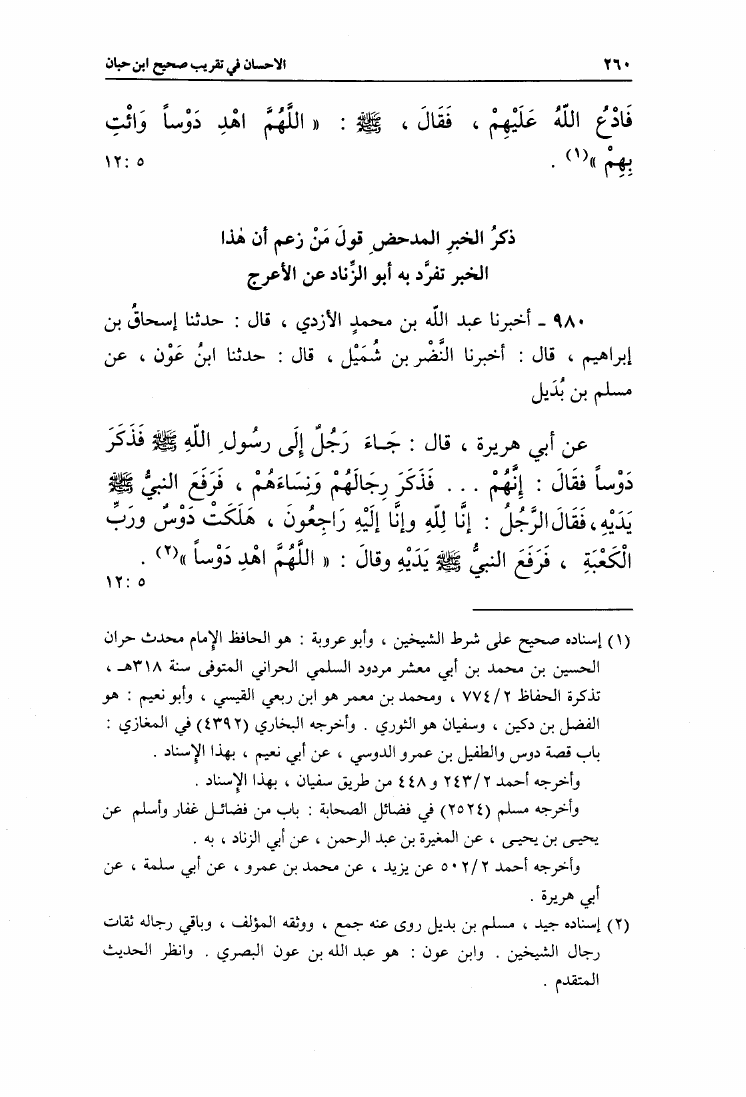 ٢٦٠ الاحسان في تقريب صحيح ابن حبان
فَادْعُ اللّٰهَ عَلَيْهِمْ ، فَقَالَ ، ﷺ : « اللَّهُمَّ اهْدِ دَوْساً وَائْتِ
بِهِمْ »(١) . ٥ : ١٢
ذكرُ الخبرِ المدحضِ قولَ مَنْ زعم أن هٰذا
الخبر تفرَّد به أبو الزِّناد عن الأعرج
٩٨٠ ـ أخبرنا عبد اللّٰه بن محمدٍ الأزدي ، قال : حدثنا إسحاقُ بن
إبراهيم ، قال : أخبرنا النَّضْر بن شُمَيْل ، قال : حدثنا ابنُ عَوْن ، عن
مسلم بن بُدَيل
عن أبي هريرة ، قال : جَاءَ رَجُلٌ إِلَى رسُولِ اللّٰهِ ﷺ فَذَكَرَ
دَوْساً فقَالَ : إِنَّهُمْ . . . فَذَكَرَ رِجَالَهُمْ وَنِسَاءَهُمْ ، فَرَفَعَ النبيُّ ﷺ
يَدَيْهِ ، فَقَالَ الرَّجُلُ : إِنَّا لِلّٰهِ وإِنَّا إِلَيْهِ رَاجِعُونَ ، هَلَكَتْ دَوْسٌ وَرَبِّ
الْكَعْبَةِ ، فَرَفَعَ النبيُّ ﷺ يَدَيْهِ وقالَ : « اللَّهُمَّ اهْدِ دَوْساً »(٢) .
٥ : ١٢
(١) إسناده صحيح على شرط الشيخين ، وأبو عروبة : هو الحافظ الإمام محدث حران
الحسين بن محمد بن أبي معشر مردود السلمي الحراني المتوفى سنة ٣١٨هـ ،
تذكرة الحفاظ ٢/ ٧٧٤ ، ومحمد بن معمر هو ابن ربعي القيسي ، وأبو نعيم : هو
الفضل بن دكين ، وسفيان هو الثوري . وأخرجه البخاري (٤٣٩٢) في المغازي :
باب قصة دوس والطفيل بن عمرو الدوسي ، عن أبي نعيم ، بهذا الإسناد .
وأخرجه أحمد ٢٤٣/٢ و ٤٤٨ من طريق سفيان ، بهذا الإسناد .
وأخرجه مسلم (٢٥٢٤) في فضائل الصحابة : باب من فضائل غفار وأسلم عن
يحيى بن يحيى ، عن المغيرة بن عبد الرحمن ، عن أبي الزناد ، به .
وأخرجه أحمد ٥٠٢/٢ عن يزيد ، عن محمد بن عمرو ، عن أبي سلمة ، عن
أبي هريرة .
(٢) إسناده جيد ، مسلم بن بديل روى عنه جمع ، ووثقه المؤلف ، وباقي رجاله ثقات
رجال الشيخين . وابن عون : هو عبد الله بن عون البصري . وانظر الحديث
المتقدم .